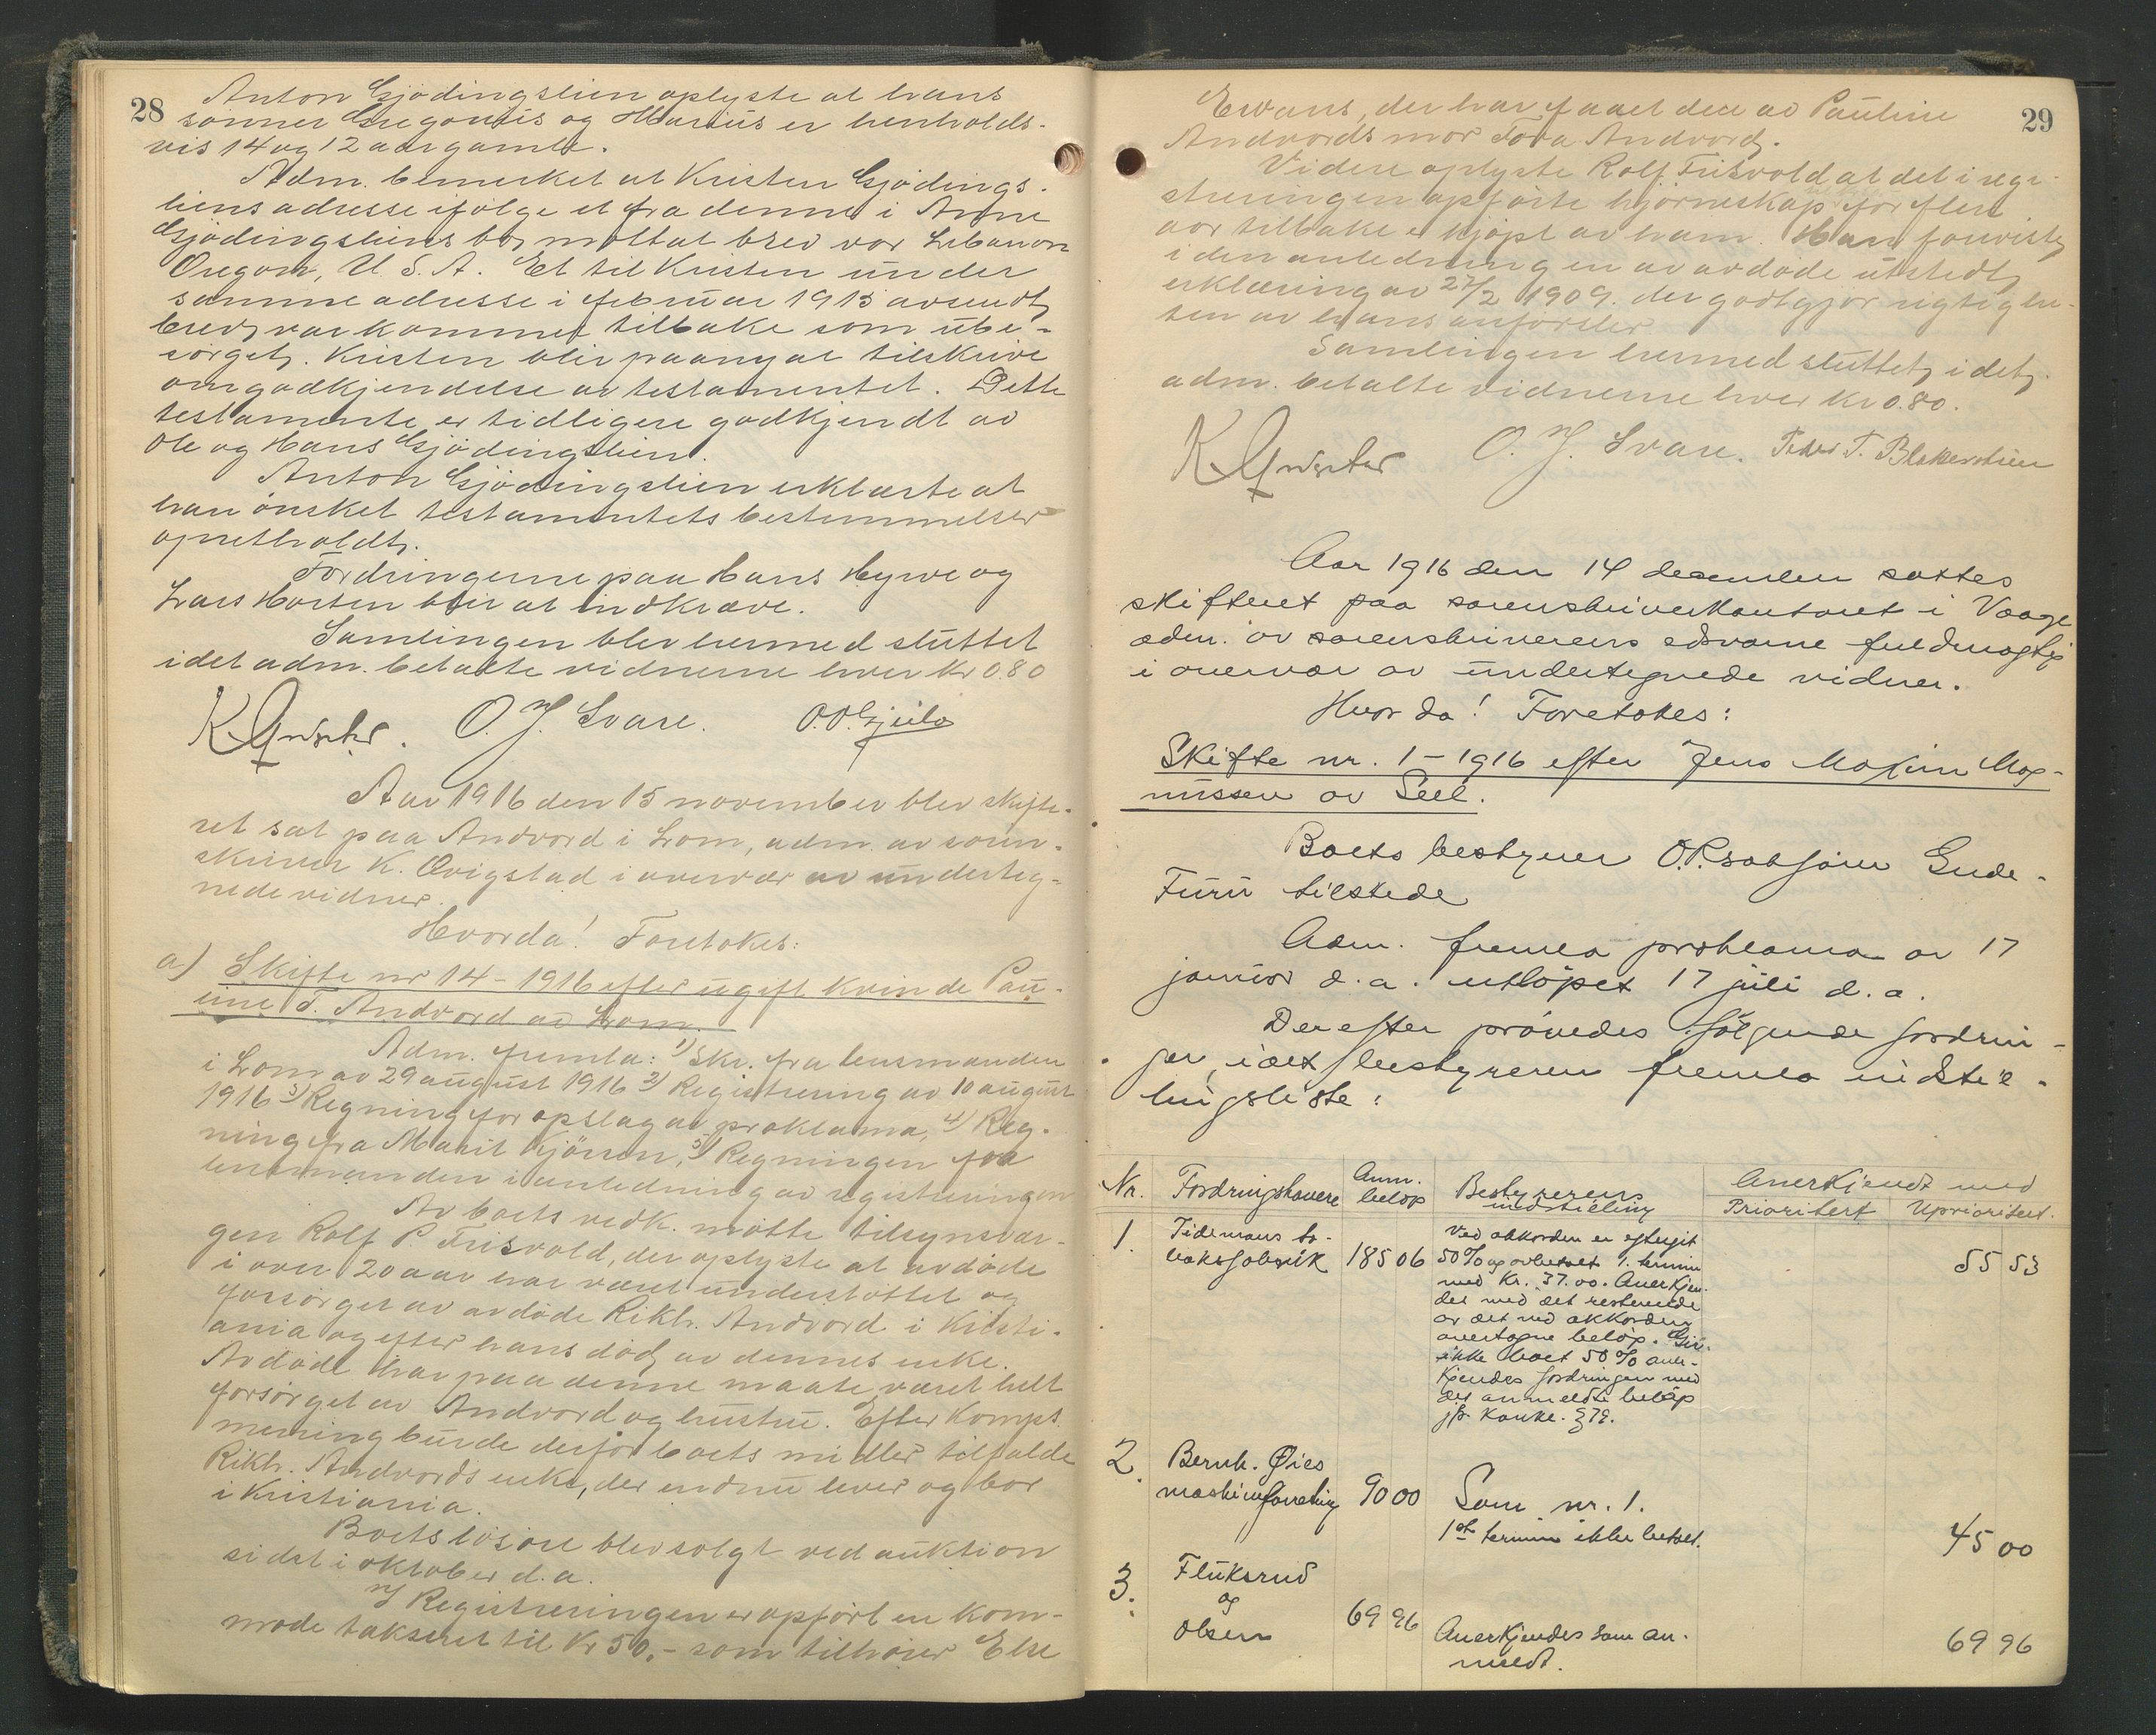 28
Anton Gjödingslien oplyste at hans
sönner Gregorius og Marius er henholds-
vis 14 og 12 aar gamle.
Adm. bemerket at Kristen Gjödings-
liens adresse ifölge et fra denne i Anne
Gjödingsliens bo mottat brev var Lebanon
Oregon, U. S. A. Et til Kristen under
samme adresse i februar 1915 avsendt
brev var kommet tilbake som ube-
sörget. Kristen blir paany at tilskrive
om godkjendelse av testamentet. Dette
testamente er tidligere godkjendt av
Ole og Hans Gjödingslien.
Anton Gjödingslien erklærte at
han önsket testamentets bestemmelser
opretholdt.
Fordringerne paa Hans Hyrve og
Lars Horten blir at indkræve.
Samlingen blev hermed sluttet
idet adm. betalte vidnerne hver Kr 0.80
O. J. Svare. O. O. Gjeilo
Aar 1916 den 15 november blev skifte-
ret sat paa Andvord i Lom, adm. av soren-
skriver K. Qvigstad i overvær av underteg-
nede vidner.
Hvorda! Foretokes:
a) Skifte nr 14 - 1916 efter ugift kvinde Pau-
line T. Andvord av Lom.
Adm. fremla: 1) Skr. fra lensmanden
i Lom av 29 august 1916 2) Registrering av 10 august
1916 3) Regning for opslag av proklama, 4) Reg-
ning fra Marit Kjörren, 5) Regningen fra
lensmanden i anledning av registreringen
Av boets vedk. mötte tilsynsvær-
gen Rolf P. Frisvold, der oplyste at avdöde
i over 20 aar har været understöttet og
forsörget av avdöde Rikh. Andvord i Kristi-
ania og efter hans död av dennes enke.
Avdöde har paa denne maate været helt
forsörget av Andvord og hustru. Efter Komps.
mening burde derfor boets midler tilfalde
Rikh. Andvords enke, der endnu lever og bor
i Kristiania.
Boets lösöre blev solgt ved auktion
sidst i oktober d. a.
I Registreringen er opfört en kom-
mode taksert til Kr 50,- som tilhörer Else
29
Evans, der har faaet den av Pauline
Andvords mor Tora Andvord.
Videre oplyste Rolf Frisvold at det i regi-
streringen opförte hjörneskap for flere
aar tilbake er kjöpt av ham. Han foreviste
i den anledning en av avdöde utstedt
erklæring av 27/2 1909. der godtgjör rigtighe-
ten av hans anförsler
Samlingen hermed sluttet, idet
adm. betalte vidnerne hver kr 0.80.
O. J. Svare. Peder T. Blakerstuen
Aar 1916 den 14 december sattes
skifteret paa sorenskriverkontoret i Vaage
adm. av sorenskriverens edsvorne fuldmægtig
i overvær av undertegnede vidner.
Hvorda! Foretokes:
Skifte nr. 1 - 1916 efter Jens Maxim Mag-
nussen av Sell.
Boets bestyrer O.R. sakförer Gude-
Furu tilstede
Adm. fremla proklama av 17
januar d. a. utlöpet 17 juli d. a.
Derefter prövedes fölgende fordrin-
ger, idet bestyreren fremla indstil-
lingsliste:
Nr. Fordringshavere Anm. belöp Bestyrerens indstilling Anerkjendt med
Prioritert Uprioritert.
1. Tidemans to-
baksfabrik 185 06 55 53
Ved akkorden er eftergit
50% og avbetalt 1. termin
med Kr. 37.00. Anerkjen-
des med det resterende
av det ved akkorden
overtagne belöp. Gir
ikke boet 50% aner-
kjendes fordringen med
det anmeldte belöp
jfr. Konkl. § 79.
2. Bernh. Øies
maskinforretning 90 00 Som nr. 1.
1ste termin ikke betalt. 45 00
3. Fluksrud
og
Olsen 69 96 Anerkjendes som an-
meldt. 69 96